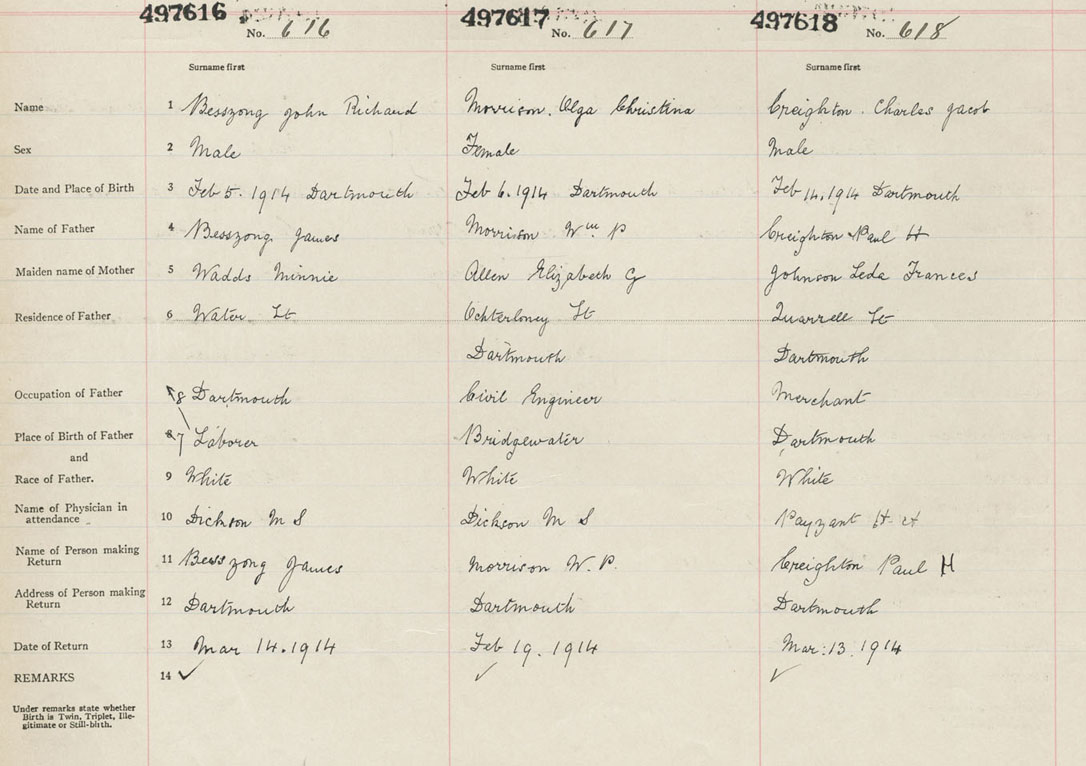 497616 497617 497618
No. 616 No. 617 No. 618
Surname first Surname first Surname first
Name 1 Besszong John Richaud Morrison. Olga Christina Creighton. Charles Jacob
Sex 2 Male Female Male
Date and Place of Birth 3 Feb 5. 1914 Dartmouth Feb 6. 1914 Dartmouth Feb 14, 1914 Dartmouth
Name of Father 4 Besszong. James Morrison Wm P Creighton Paul H
Maiden name of Mother 5 Wadds Minnie Allen Elizabeth G Johnson Leda Frances
Residence of Father 6 Water St Ochterloney St Quarrell St
Dartmouth Dartmouth
Occupation of Father 8 Dartmouth Civil Engineer Merchant
Place of Birth of Father 8 7 Laborer Bridgewater Dartmouth
and
Race of Father. 9 White White White
Name of Physician in
attendance 10 Dickson M S Dickson M S Payzant H A
Name of Person making
Return 11 Besszong James Morrison W. P. Creighton Paul H
Address of Person making
Return 12 Dartmouth Dartmouth Dartmouth
Date of Return 13 Mar 14. 1914 Feb 19. 1914 Mar: 13. 1914
REMARKS 14 ✓ ✓ ✓
Under remarks state whether
Birth is Twin, Triplet, Ille-
gitimate or Still-birth.